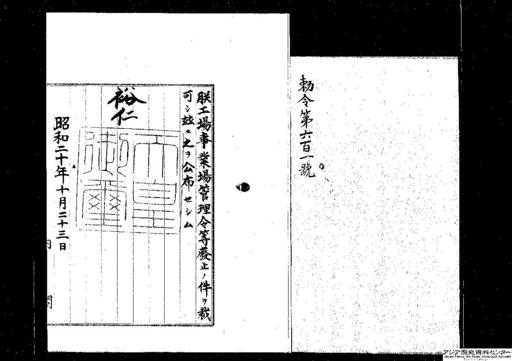 勅令第六百一號
朕工場事業場管理令等廢止ノ件ヲ裁
可シ玆ニ之ヲ公布セシム
裕仁
天皇
御璽
昭和二十年十月二十三日
内閣
アジア歴史資料センター